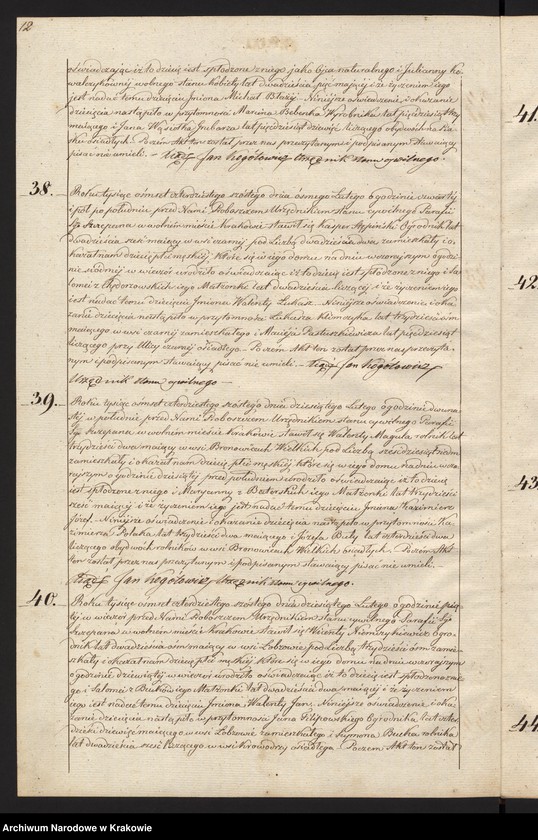 12
oświadczając iż to dziecię jest spłodzone z niego jako Ojca naturalnego i Julianny Ko
walczykównéj wolnego stanu kobiety lat dwadzieścia pięć mającéj i że życzeniem jego
jest nadać temu dziecięciu Imiona Michał Błażéj. Niniejsze oświadczenie i okazanie
dziecięcia nastąpiło w przytomności Marcina Wyrobnika lat pięćdziesiąt
mającego i Jana Garbarza lat pięćdziesiąt dziewięć liczącego obydwóch na
osiadłych. Poczem Akt ten został przez nas przeczytanym i podpisanym stawający
pisać nie umieli. — Xiądz Jan Urzędnik stanu cywilnego.
38. Roku tysiąc ośmset czterdziestego szóstego dnia ósmego Lutego o godzinie czwartéj
i pół po południu przed Nami Proboszczem Urzędnikiem stanu cywilnego Parafii
Sgo Szczepana w wolném mieście Krakowie stawił się Kasper Stępiński Ogrodnik lat
dwadzieścia sześć mający w wsi czarnéj pod Liczbą dwadzieścia dwa zamieszkały i o
kazał nam dziecię płci męzkiéj, które się w jego domu na dniu wczorajszym o godzi
nie siódméj w wieczór urodziło oświadczając iż to dziecię jest spłodzone z niego i Sa
lomei z jego Małżonki lat dwadzieścia liczącéj i że życzeniem jego
jest nadać temu dziecięciu Imiona Walenty Łukasz. Niniejsze oświadczenie i oka
zanie dziecięcia nastąpiło w przytomności Łukasza Klimczyka lat trzydzieści ośm
mającego w wsi czarnéj zamieszkałego i Macieja Pastuszkiewicza lat pięćdziesiąt
liczącego przy Ulicy Czarnéj osiadłego. — Poczem Akt ten został przez nas przeczyta
nym i podpisanym stawający pisać nie umieli. — Xiądz Jan
Urzędnik stanu cywilnego —
39. Roku tysiąc ośmset czterdziestego szóstego dnia dziesiątego Lutego o godzinie dwuna
stéj w południe przed Nami Proboszczem Urzędnikiem stanu cywilnego Parafii
Sgo Szczepana w wolném mieście Krakowie stawił się Walenty Magula rolnik lat
trzydzieści dwa mający w wsi Bronowicach Wielkich pod Liczbą sześćdziesiąt siedm
zamieszkały i okazał nam dziecię płci męzkiéj które się w jego domu na dniu wczo
rajszym o godzinie dziesiątéj przed południem urodziło oświadczając iż to dziecię
jest spłodzone z niego i Maryanny z jego Małżonki lat trzydzieści
sześć mającéj i że życzeniem jego jest nadać temu dziecięciu Imiona Kazimierz
Józef. Niniejsze oświadczenie i okazanie dziecięcia nastąpiło w przytomności Ka
zimierza Polaka lat trzydzieści dwa mającego i Józefa Biały lat czterdzieści dwa
liczącego obydwóch rolników w wsi Bronowicach Wielkich osiadłych. Poczem Akt
ten został przez nas przeczytanym i podpisanym stawający pisać nie umieli.
Xiądz Jan Urzędnik stanu cywilnego.
40. Roku tysiąc ośmset czterdziestego szóstego dnia dziesiątego Lutego o godzinie pią
téj w wieczór przed Nami Proboszczem Urzędnikiem stanu cywilnego Parafii Sgo
Szczepana w wolném mieście Krakowie stawił się Wicenty Niemczykiewicz Ogro
dnik lat dwadzieścia ośm mający w wsi Łobzowie pod Liczbą trzydzieści ośm zamie
szkały i okazał nam dziecię płci męzkiéj które się w jego domu na dniu wczorajszym
o godzinie dziewiątéj w wieczór urodziło oświadczając iż to dziecię jest spłodzone z nie
go i Salomei z jego Małżonki lat dwadzieścia dwa mającéj i że życzeniem
jego jest nadać temu dziecięciu Imiona Walenty Jan. Niniejsze oświadczenie i oka
zanie dziecięcia nastąpiło w przytomności Jana Filipowskiego Ogrodnika lat czter
dzieści dziewięć mającego w wsi Łobzowie zamieszkałego i Szymona Bucka rolnika
lat dwadzieścia sześć liczącego w wsi Krowodrzy osiadłego. — Poczem Akt ten został
41.
42.
43.
44.
Archiwum Narodowe w Krakowie
www.szukajwarchiwach.pl